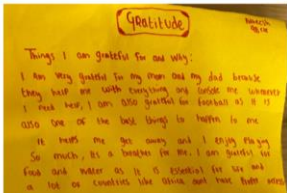 Gratitude
Things I am grateful for and why:
I am very grateful for my mom and my dad because
they help me with everything and console me whenever
I need help, I am also grateful for football as it is
also one of the best things to happen to me
It helps me get away and I enjoy playing
So much, its a breather for me. I am grateful for
food and water as it is essential for life and
a lot of countries like africa dont have fresh